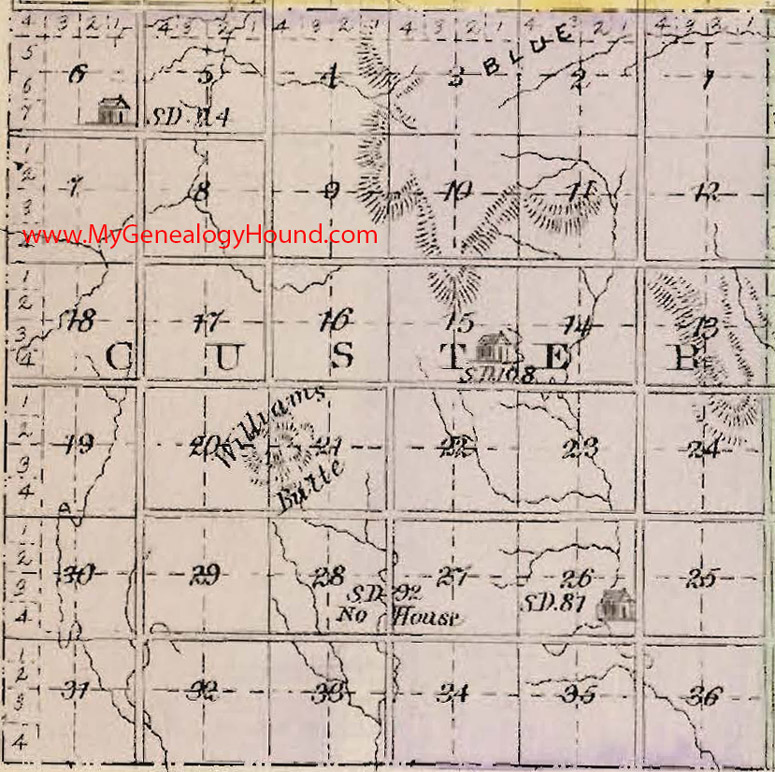 4 3 2 1 4 3 2 1 4 3 2 1 4 3 2 1 4 3 2 1 4 3 3 1
BLUE
5
6 5 4 3 2 1
6
7
S.D. 114
1
2
7 8 9 10 11 12
3
4
www.MyGenealogyHound.com
1
2
18 17 16 15 14 13
3
4
CUSTER
S.D. 108
1
2
19 20 21 22 23 24
3
4
Williams
Butte
1
2
30 29 28 27 26 25
3
4
S.D. 92
No House
S.D. 87
1
2
31 32 33 34 35 36
3
4